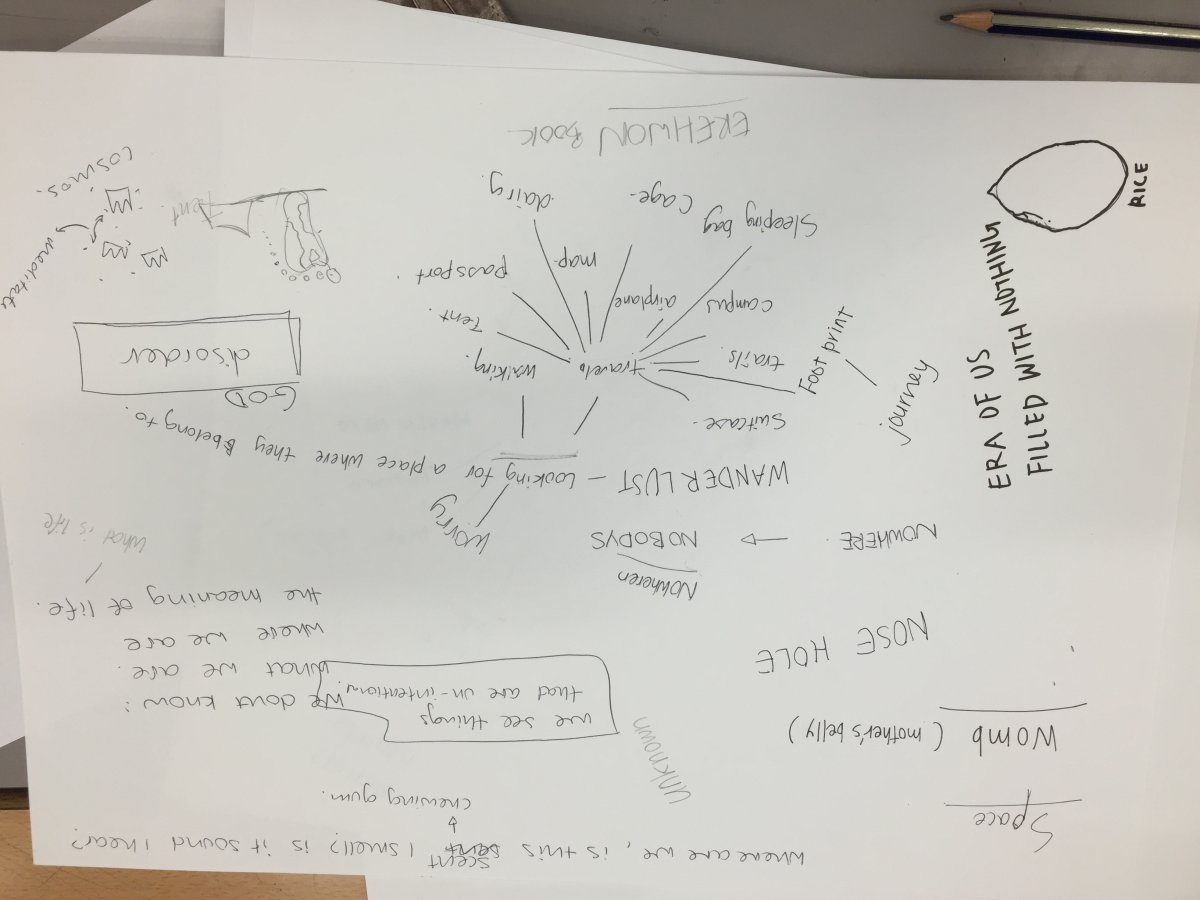 where are we, is this scent I smell? is it sound I hear?
chewing gum.
Space
Womb (mother's belly)
unknown
we see things
that are un-intentional.
We dont know:
what we are.
where we are
the meaning of life.
what is life
NOSE HOLE
Nowheren
NOWHERE. NOBODYS
worry
WANDERLUST - Looking for a place where they belong to.
GOD
disorder
travel.
suitcase.
trails.
campus
airplane
Sleeping bag
Cage.
map.
dairy.
passport
Tent.
walking.
Foot print
journey
EREHWON BOOK
Tent
COSMOS.
meditate
ERA OF US
FILLED WITH NOTHING
RICE